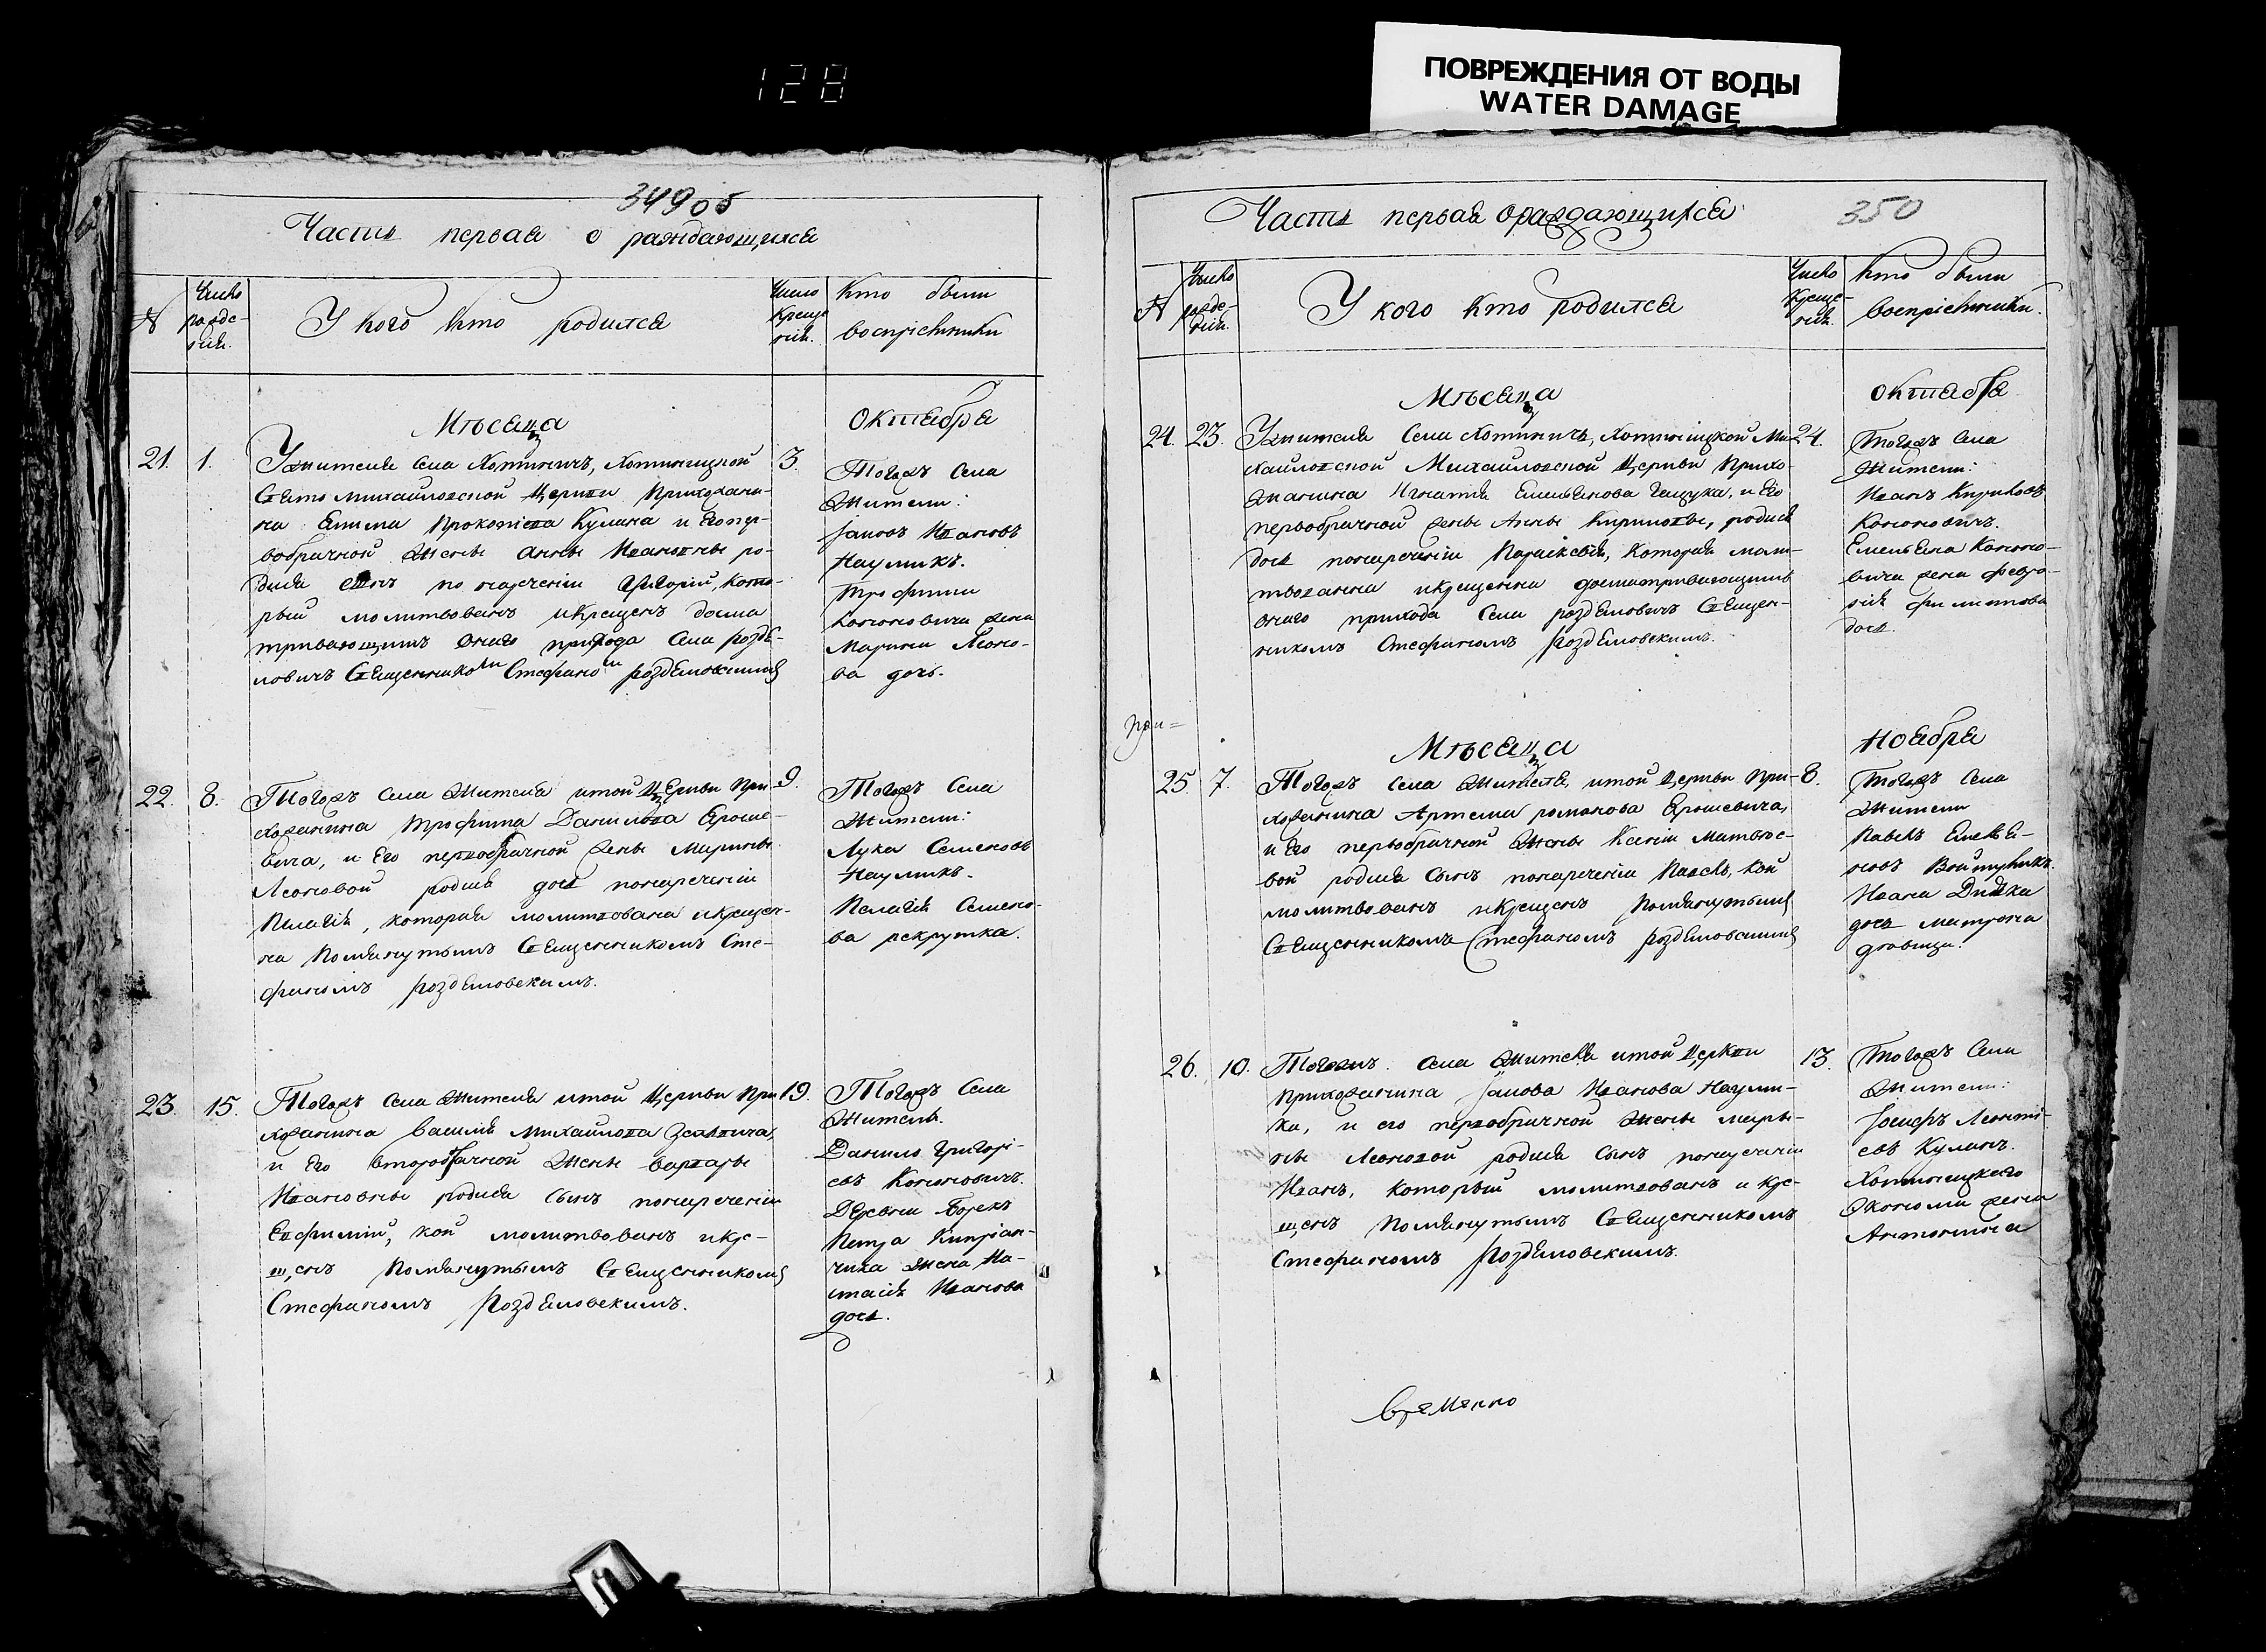 128
ПОВРЕЖДЕНИЯ ОТ ВОДЫ
WATER DAMAGE
349 об
Часть первая о раждающихся
№
Число рожде-нія.
У кого кто родился
Число Креще нія.
Кто были воспріемники
Мѣсяца
Октабра
21. 1.
Ужителя Села Хотыничъ, Хотыницкой
Свято Михайловской Церкви Прихожани-
на Прокопіева Кулика и Его пер-
вобрачной Жены Анны Ивановны ро-
дился Сынъ по наречении Григорій, кото-
рый молитвованъ икрещенъ досма
тривающимъ Онаго прихода Села розде-
ловичъ Священникомъ Стефаномъ Розделовскимъ
3.
Тогожъ Села
Жители:
Іаковъ Ивановъ
Наумикъ.
Трофима
Кононовича жена
Марина Леоно-
ва дочь.
22. 8.
Тогожъ Села Жителя итой Церкви При-
хожанина Трофима Данилова Ероше-
вича, и Его первобрачной жены Марины
Леоновой родися дочь понареченіи
Пелагія, которая молитвована икрещен-
на Помянутымъ Священникомъ Сте-
фаномъ Розделовскимъ.
9.
Тогожъ Села
Жители:
Лука Семеновъ
Наумикъ.
Пелагія Семено-
ва рекрутка.
23. 15.
Тогожъ Села Жителя итой Церкви При
хожанина Василія Михайлова
и Его второбрачной Жены Варвары
Ивановны родися Сынъ понареченіи
Евфимій, кой молитвованъ икре-
щенъ Помянутымъ Священникомъ
Стефаномъ Розделовскимъ.
19.
Тогожъ Села
Жители.
Данило Григорі-
евъ Кононовичъ.
Деревни Борекъ
Петра Кипріан-
чика Жена На-
талія Иванова
дочь.
350
Часть первая ораждающихся
№
Число рожде-нія.
У кого кто родился
Число Креще-нія.
Кто были воспріемники.
Мѣсяца
Октабра
24. 23.
Ужителя Села Хотыничъ, Хотыницкой Ми-
хайловской Михайловской Церкви Прихо-
жанина Игнатія Емельянова Гацука, и Его
первобрачной жены Анны Кириловы, родися
дочь понареченіи Параскевія, Которая мали-
твованна икрещенна досматривающимъ
онаго прихода Села розделовичъ Священ-
никомъ Стефаномъ Розделовскимъ.
24.
Тогожъ Села
Жители:
Иванъ Кириловъ
Кононовичъ.
Емельяна Кононо-
вича жена Февро-
нія Филимонова
дочь.
При=
Мѣсяца
Ноабра
25. 7.
Тогожъ Села Жителя, итой Церкви При-
хожанина Артема романова Ерошевича,
и Его первобрачной Жены Ксеніи Матвѣе-
вой родися Сынъ понареченіи Павелъ, кой
молитвованъ икрещенъ Помянутымъ
Священникомъ Стефаномъ Розделовскимъ
8.
Тогожъ Села
Жители
Павелъ Емелья-
новъ Войтушикъ.
Ивана Дидка
дочь Матрона
дѣвица.
26. 10.
Тогожъ Села Жителя итой Церкви
Прихожанина Іакова Иванова Науми-
ка, и его первобрачной Жены Мары-
ны Леоновой родися Сынъ понареченіи
Иванъ, который молитвованъ и кре-
щенъ Помянутымъ Священникомъ
Стефаномъ Розделовскимъ.
13.
Тогожъ Села
Жители:
Іосифъ Леонті-
евъ Куликъ.
Хотыницкаго
Эконома жена
Антонина
Временно